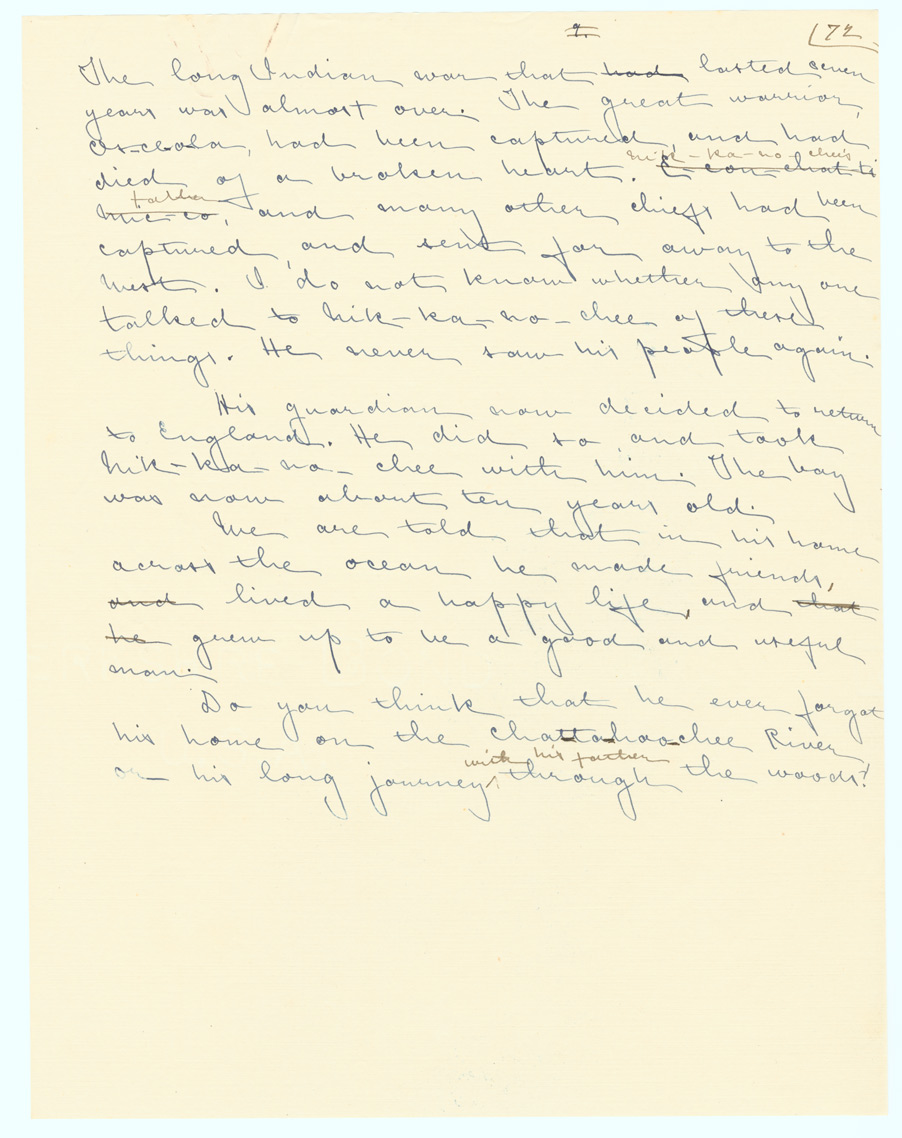 9. 72
The long Indian war that had lasted seven
years was almost over. The great warrior,
Os-ce-ola, had been captured, and had
nik-ka-no-chee's
died of a broken heart. E-con-chat-ti
father
mic-co, and many other chiefs had been
captured and sent far away to the
West. I do not know whether any one
talked to Nik-ka-no-chee of these
things. He never saw his people again.
His guardian now decided to return
to England. He did so and took
Nik-ka-no-chee with him. The boy
was now about ten years old.
We are told that in his home
across the ocean he made friends,
and lived a happy life, and that
he grew up to be a good and useful
man.
Do you think that he ever forgot
his home on the Chattahoochee River
with his father
or his long journey, through the woods?